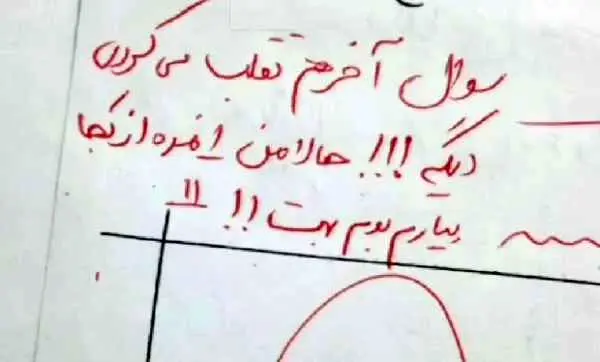 سوال آخرهم تقلب می کردی
دیگه !!! حالا من 1 نمره از کجا
بیارم بدم بهت !! 11